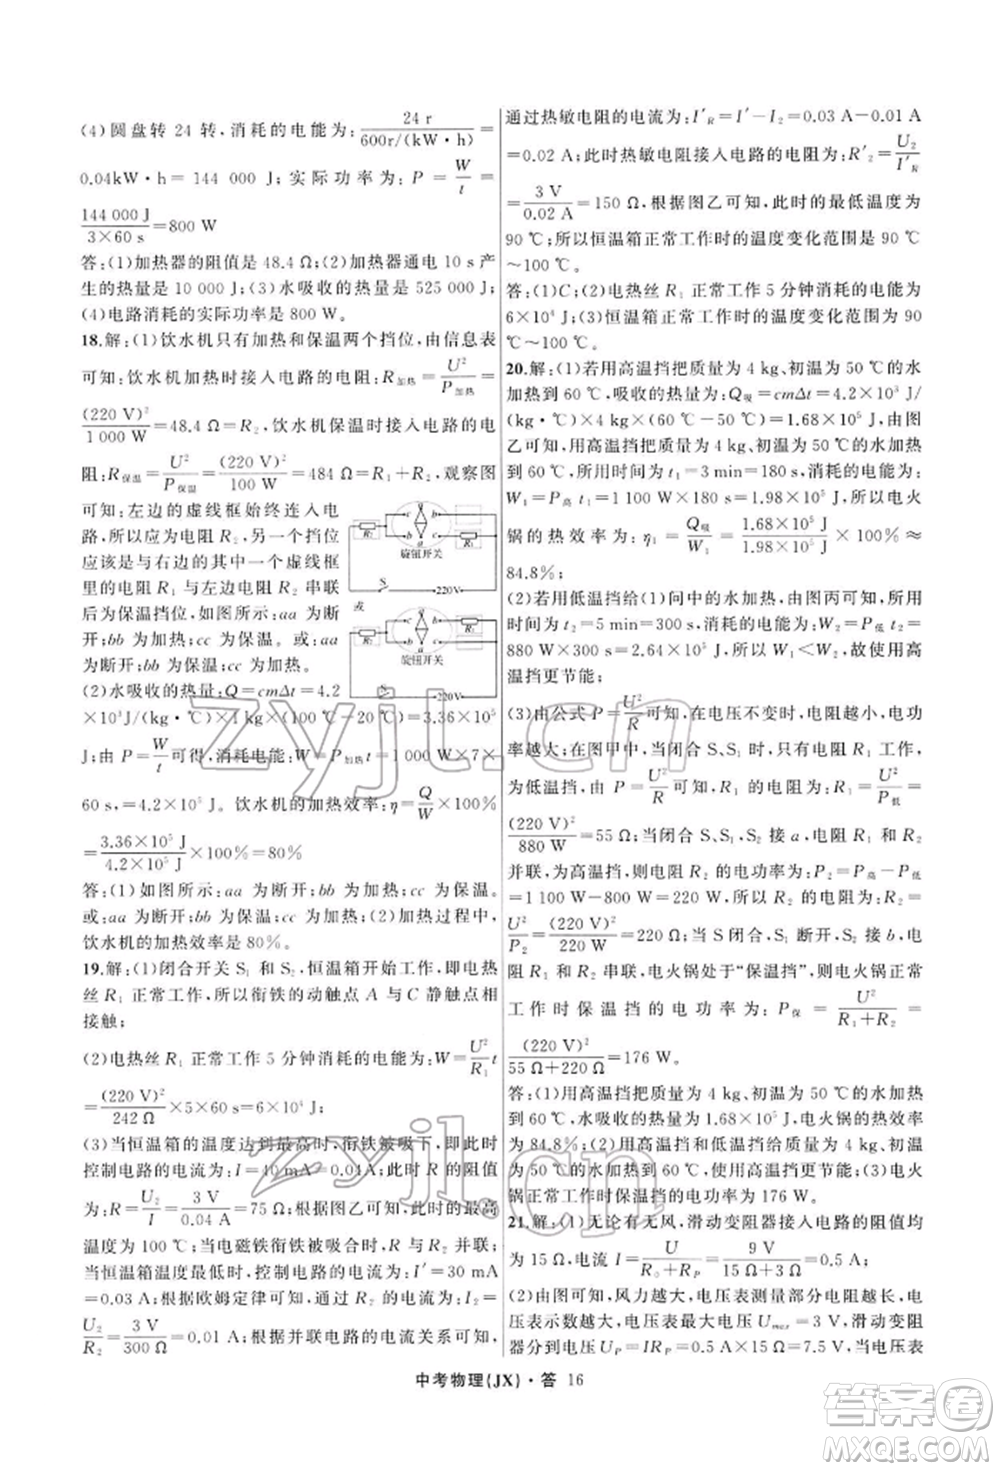 (4)圆盘转 24 转,消耗的电能为:24 r/600r/(kW·h)=
0.04kW·h=144 000 J;实际功率为:P=W/t=
144 000 J/3×60 s=800 W
答:(1)加热器的阻值是 48.4 Ω;(2)加热器通电 10 s 产
生的热量是 10 000 J;(3)水吸收的热量是 525 000 J;
(4)电路消耗的实际功率是 800 W。
18.解:(1)饮水机只有加热和保温两个挡位,由信息表
可知:饮水机加热时接入电路的电阻:R加热=U²/P加热=
(220 V)²/1 000 W=48.4 Ω=R₂,饮水机保温时接入电路的电
阻:R保温=U²/P保温=(220 V)²/100 W=484 Ω=R₁+R₂,观察图
可知:左边的虚线框始终连入电
路,所以应为电阻 R₂,保温挡位
应该是与右边的其中一个虚线框
里的电阻 R₁ 与左边电阻 R₂ 串联
后为保温挡位,如图所示:aa 为断
开;bb 为加热;cc 为保温。或:aa
为断开;bb 为保温;cc 为加热。
R₂ c b a a b c R₁
旋钮开关
S 220V
或
R₂ c b a a b c R₁
旋钮开关
S 220V
(2)水吸收的热量:Q=cmΔt=4.2
×10³J/(kg·℃)×1 kg×(100 ℃-20 ℃)=3.36×10⁵
J;由 P=W/t可得,消耗电能:W=P加热t=1 000 W×7×
60 s,=4.2×10⁵ J。饮水机的加热效率:η=Q/W×100%
=3.36×10⁵ J/4.2×10⁵ J×100%=80%
答:(1)如图所示:aa 为断开;bb 为加热;cc 为保温。
或:aa 为断开;bb 为保温;cc 为加热;(2)加热过程中,
饮水机的加热效率是 80%。
19.解:(1)闭合开关 S₁ 和 S₂,恒温箱开始工作,即电热
丝 R₁ 正常工作,所以衔铁的动触点 A 与 C 静触点相
接触;
(2)电热丝 R₁ 正常工作 5 分钟消耗的电能为:W=U²/R₁t
=(220 V)²/242 Ω×5×60 s=6×10⁴ J;
(3)当恒温箱的温度达到最高时,衔铁被吸下,此时
控制电路的电流为:I=40 mA=0.04A;此时 R 的阻值
为:R=U₂/I=3 V/0.04 A=75 Ω;根据图乙可知,此时的最高
温度为 100 ℃;当电磁铁衔铁吸合时,R 与 R₂ 并联;
当恒温箱温度最低时,控制电路的电流为:I′=30 mA
=0.03 A;根据欧姆定律可知,通过 R₂ 的电流为:I₂=
U₂/R₂=3 V/300 Ω=0.01 A;根据并联电路的电流关系可知,
通过热敏电阻的电流为:I′R=I′-I₂=0.03 A-0.01 A
=0.02 A;此时热敏电阻接入电路的电阻为:R′₂=U₂/I′R
=3 V/0.02 A=150 Ω,根据图乙可知,此时的最低温度为
90 ℃;所以恒温箱正常工作时的温度变化范围是 90 ℃
~100 ℃。
答:(1)C;(2)电热丝 R₁ 正常工作 5 分钟消耗的电能为
6×10⁴ J;(3)恒温箱正常工作时的温度变化范围是 90
℃~100 ℃。
20.解:(1)若用高温挡把质量为 4 kg、初温为 50 ℃的水
加热到 60 ℃,吸收的热量为:Q吸=cmΔt=4.2×10³ J/
(kg·℃)×4 kg×(60 ℃-50 ℃)=1.68×10⁵ J;由图
乙可知,用高温挡把质量为 4 kg、初温为 50 ℃的水加热
到 60 ℃,所用时间为 t₁=3 min=180 s,消耗的电能为:
W₁=P高t₁=1 100 W×180 s=1.98×10⁵ J,所以电火
锅的热效率为:η₁=Q吸/W₁=1.68×10⁵ J/1.98×10⁵ J×100%≈
84.8%;
(2)若用低温挡给(1)问中的水加热,由图丙可知,所用
时间为 t₂=5 min=300 s,消耗的电能为:W₂=P低t₂=
880 W×300 s=2.64×10⁵ J,所以 W₁<W₂,故使用高
温挡更节能;
(3)由公式 P=U²/R可知,在电压不变时,电阻越小,电功
率越大;在图甲中,当闭合 S、S₁ 时,只有电阻 R₁ 工作,
为低温挡,由 P=U²/R可知,电阻 R₁ 的阻值为:R₁=U²/P低=
(220 V)²/880 W=55 Ω;当闭合 S、S₁、S₂ 接 a,电阻 R₁ 和 R₂
并联,为高温挡,则电阻 R₂ 的电功率为:P₂=P高-P低
=1 100 W-880 W=220 W,所以电阻 R₂ 的阻值为:R₂=
U²/P₂=(220 V)²/220 W=220 Ω;当 S 闭合,S₁ 断开,S₂ 接 b,电
阻 R₁ 和 R₂ 串联,电火锅处于“保温挡”,则电火锅正常
工作时保温挡的电功率为:P保=U²/R₁+R₂=
(220 V)²/55 Ω+220 Ω=176 W。
答:(1)用高温挡把质量为 4 kg、初温为 50 ℃的水加热
到 60 ℃,水吸收的热量为 1.68×10⁵ J,电火锅的热效率
为 84.8%;(2)用高温挡和低温挡给质量为 4 kg、初温为
50 ℃的水加热到 60 ℃,使用高温挡更节能;(3)电火
锅正常工作时保温挡的电功率为 176 W。
21.解:(1)无论有无风,滑动变阻器接入电路的阻值均
为 15 Ω,电流 I=U/R₀+RP=9 V/15 Ω+3 Ω=0.5 A;
(2)由图可知,风力越大,电压表测量部分电阻越长,电
压表示数越大,无风时电压表示数最大为 Umax=3 V,滑动变阻
器分到电压为 UP=IRP=0.5 A×15 Ω=7.5 V,当电压表
中考物理(JX)·答 16
zyjl.cn
zyjl.cn
答案圈
MXQE.COM